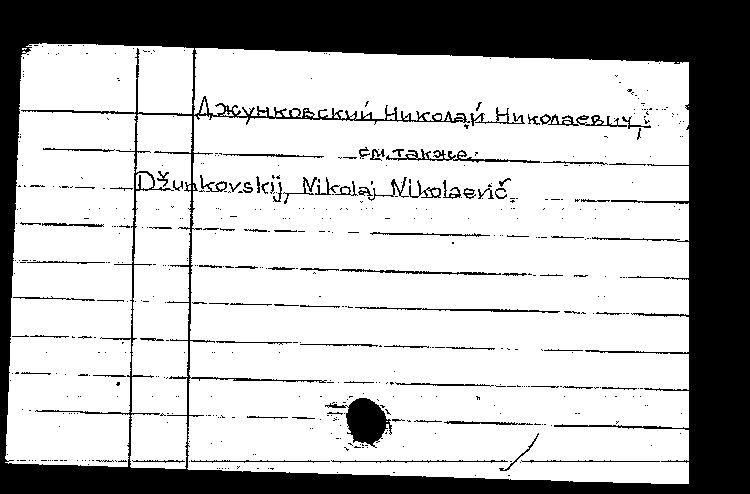 Джунковский, Николай Николаевич,
см. также:
Džunkovskij, Nikolaj Nikolaevič.